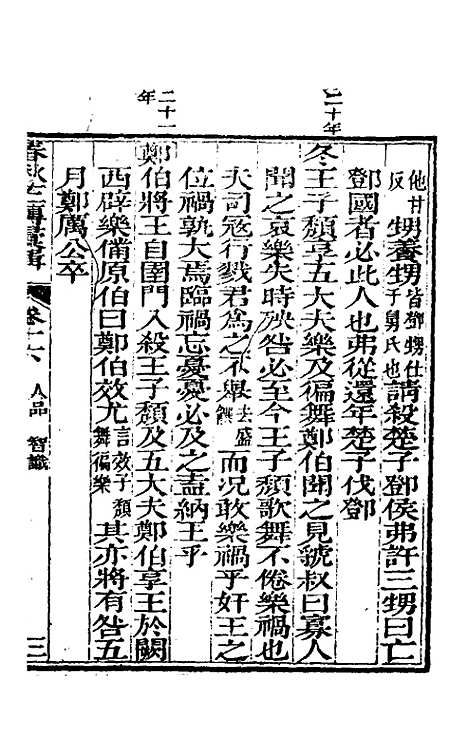 他甘反甥養甥皆鄧甥仕子舅氏也請殺楚子鄧侯弗許三甥曰亡
鄧國者必此人也弗從還年楚子伐鄧
二十年
冬王子頹享五大夫樂及徧舞鄭伯聞之見虢叔曰寡人
聞之哀樂失時殃咎必至今王子頹歌舞不倦樂禍也
夫司寇行戮君為之不舉去盛饌而况敢樂禍乎奸王之
位禍孰大焉臨禍忘憂憂必及之盍納王乎
二十一年
鄭伯將王自圉門入殺王子頹及五大夫鄭伯享王於闕
西辟樂備原伯曰鄭伯效尤言效子頹舞徧樂其亦將有咎五
月鄭厲公卒
卷十六 人品 智識 三